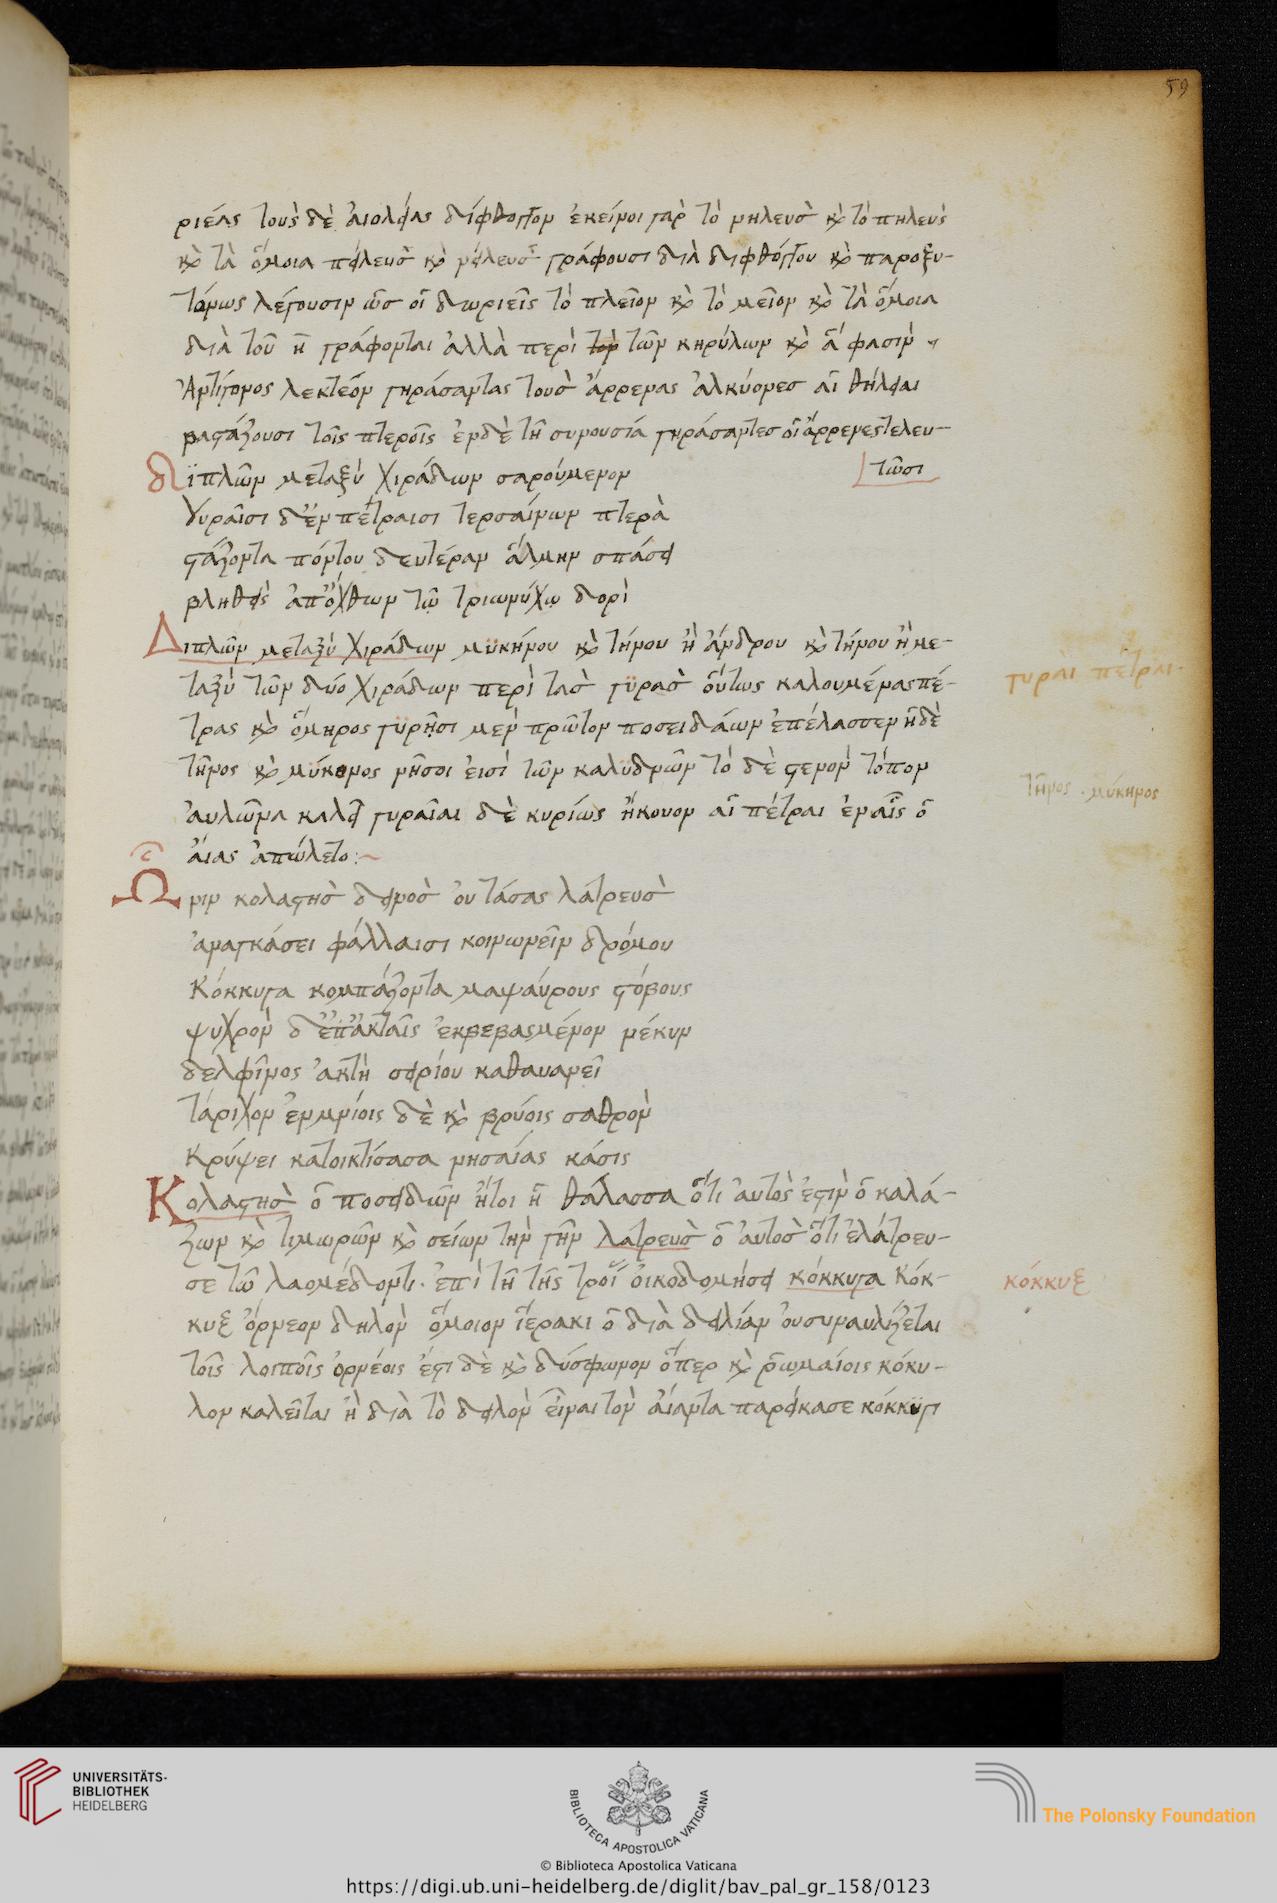 59
ριεῖς τοὺς δὲ αἰολεῖς δίφθογγον ἐκεῖνοι γὰρ τὸ νηλεὺς καὶ τὸ πηλεὺς
καὶ τὰ ὅμοια πείλευς καὶ νείλευς γράφουσι διὰ διφθόγγου καὶ παροξυ-
τόνως λέγουσιν ὡς οἱ δωριεῖς τὸ πλεῖον καὶ τὸ μεῖον καὶ τὰ ὅμοια
διὰ τοῦ η γράφονται ἀλλὰ περὶ τὸν τῶν κηρύλων καὶ ἅ φασιν
Ἀντίγονος λεκτέον γηράσαντας τοὺς ἄρρενας ἀλκύονες αἱ θήλειαι
βαστάζουσι τοῖς πτεροῖς ἐνδὲ τῆ συνουσία γηράσαντες οἱ ἄρρενες τελευ-
τῶσι
διπλῶν μεταξὺ χιράδων σαρούμενον
Γυραῖσι δ' ἐν πέτραισι τερσαίνων πτερὰ
στάζοντα πόντου δευτέραν ἅλμην σπάσει
βληθεὶς ἀπ' ὄχθων τῷ τριωνύχῳ δορὶ
Διπλῶν μεταξὺ χιράδων μϋκήνου καὶ τήνου ἢ ἄνδρου καὶ τήνου ἢ με-
ταξὺ τῶν δύο χιράδων περὶ τὰς γϋρὰς οὕτως καλουμένας πέ-
τρας καὶ ὅμηρος γϋρῆσι μὲν πρῶτον ποσειδάων ἐπέλασσεν ἡδὲ
τῆνος καὶ μύκονος νῆσοι εἰσὶ τῶν καλϋδνῶν τὸ δὲ στενὸν τόπον
αὐλῶνα καλεῖ γυραῖαι δὲ κυρίως ἤκουον αἱ πέτραι ἐν αἷς ὁ
αἴας ἀπώλετο:~
Ὦριν κολαστὴς δεινὸς οὐτάσας λάτρευς
ἀναγκάσει φάλλαισι κοινωνεῖν δρόμου
Κόκκυγα κομπάζοντα μαψαύρους στόβους
ψυχρὸν δ' ἐπ' ἀκταῖς ἐκβεβασμένον νέκυν
δελφῖνος ἀκτὴ σειρίου καθαυανεῖ
τάριχον ἐν μνίοις δὲ καὶ βρύοις σαθρὸν
Κρύψει κατοικτίσασα νησαίας κάσις
Κολαστὴς ὁ ποσειδῶν ἤτοι ἡ θάλασσα ὅτι αὐτὸς ἐστὶν ὁ κολά-
ζων καὶ τιμωρῶν καὶ σείων τὴν γῆν λατρεὺς ὁ αὐτὸς ὅτι ἐλάτρευ-
σε τῷ λαομέδοντι. ἐπὶ τῆ τῆς τροΐας οἰκοδομήσει κόκκυγα Κόκ-
κυξ ὄρνεον δηλὸν ὅμοιον ἱέρακι ὃ διὰ δειλίαν οὐ συναυλίζεται
τοῖς λοιποῖς ὀρνέοις ἔστι δὲ καὶ δύσφωνον ὅπερ καὶ ῥωμαίοις κόκυ-
λον καλεῖται ἢ διὰ τὸ δειλὸν εἶναι τὸν αἴαντα παρείκασε κόκκϋγι
γυραὶ πέτραι.
τῆνος . μύκηνος
κόκκυξ
UNIVERSITÄTS-
BIBLIOTHEK
HEIDELBERG
BIBLIOTECA APOSTOLICA VATICANA
© Biblioteca Apostolica Vaticana
The Polonsky Foundation
https://digi.ub.uni-heidelberg.de/diglit/bav_pal_gr_158/0123